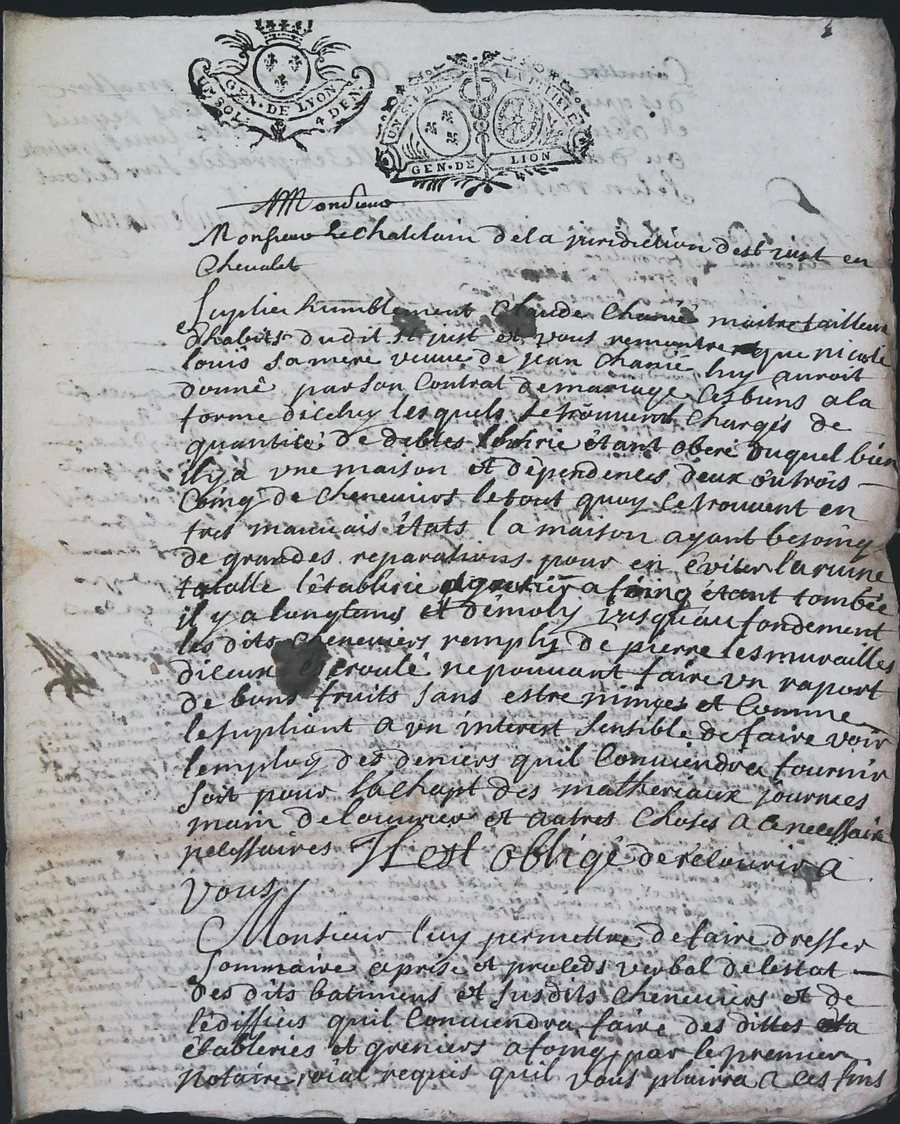 GEN. DE LYON
UN SOL. 4 DEN.
GEN. DE LION
A Monsieur
Monsieur le Chatelain de la juridiction de st just en
Chevalet
Suplie humblement Claude Charié maitre tailleur
d'habits dudit st just et vous remontre que nicole
louis sa mere veuve de jean Charié luy auroit
donné par son Contrat de mariage ses biens a la
forme diceluy lesquels se trouvent Chargés de
quantité de debtes étant oberé duquel bien
il y a vne maison et dépendences deux ou trois
Coing de cheneviers le tout quoy se trouvent en
tres mauvais états la maison ayant besoing
de grandes reparations pour en éviter la ruine
totalle l'établerie a foing étant tombée
il y a longtems et démoly jusqu'au fondement
les dits cheneviers remplis de pierre les murailles
diceux écroulé ne pouvant faire vn raport
de bons fruits sans estre et Comme
le supliant a vn interest sensible de faire voir
l'employ des deniers quil Conviendra fournir
soit pour l'achapt des matheriaux journees
main de louvrier et autres choses a ce necessaire
necessaires Il est obligé de recourir a
vous
Monsieur luy permettre de faire dresser
sommaire aprise et proceds verbal de lestat
des dits batimens et susdits cheneviers et de
lédiffices quil Conviendra faire des dittes
étableries et greniers a foing par le premier
notaire roial requis quil vous plairra a ces fins